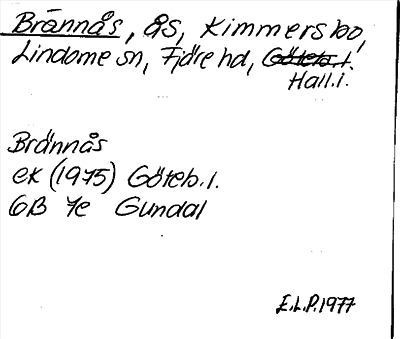 Brännås, ås, Kimmersbo,
Lindome sn, Fjäre hd, Göteb. l.
Hall. l.
Brännås
ek (1975) Göteb. l.
6B 7e Gundal
E.L.P. 1977